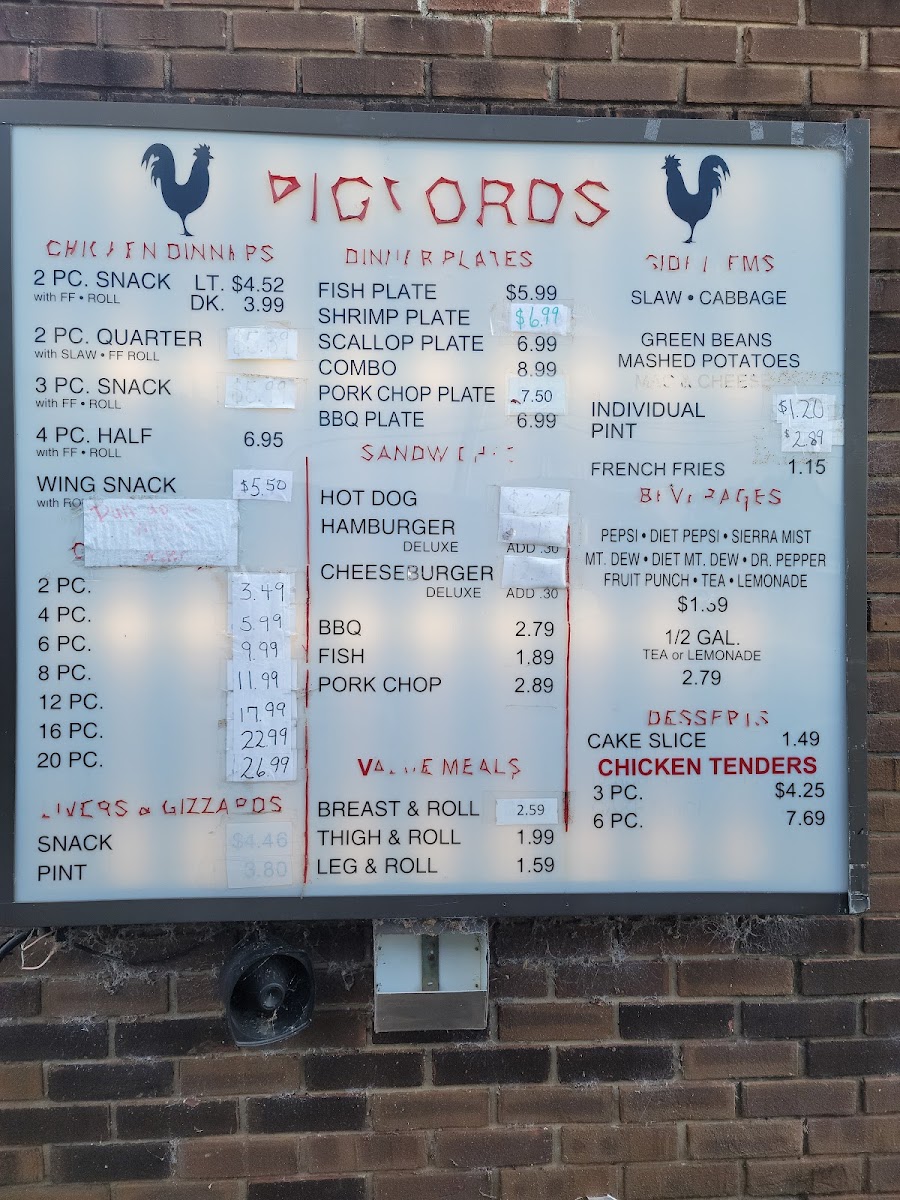 PIGFORDS
CHICKEN DINNERS
2 PC. SNACK LT. $4.52
with FF • ROLL DK. 3.99
2 PC. QUARTER
with SLAW • FF ROLL
3 PC. SNACK $5.99
with FF • ROLL
4 PC. HALF 6.95
with FF • ROLL
WING SNACK $5.50
with
2 PC. 3.49
4 PC. 5.99
6 PC. 9.99
8 PC. 11.99
12 PC. 17.99
16 PC. 22.99
20 PC. 26.99
LIVERS & GIZZARDS
SNACK $4.46
PINT 3.80
DINNER PLATES
FISH PLATE $5.99
SHRIMP PLATE $6.99
SCALLOP PLATE 6.99
COMBO 8.99
PORK CHOP PLATE 7.50
BBQ PLATE 6.99
SANDWICHES
HOT DOG
HAMBURGER
DELUXE ADD .30
CHEESEBURGER
DELUXE ADD .30
BBQ 2.79
FISH 1.89
PORK CHOP 2.89
VALUE MEALS
BREAST & ROLL 2.59
THIGH & ROLL 1.99
LEG & ROLL 1.59
SIDE ITEMS
SLAW • CABBAGE
GREEN BEANS
MASHED POTATOES
MAC & CHEESE
INDIVIDUAL $1.20
PINT $2.89
FRENCH FRIES 1.15
BEVERAGES
PEPSI • DIET PEPSI • SIERRA MIST
MT. DEW • DIET MT. DEW • DR. PEPPER
FRUIT PUNCH • TEA • LEMONADE
$1.59
1/2 GAL.
TEA or LEMONADE
2.79
DESSERTS
CAKE SLICE 1.49
CHICKEN TENDERS
3 PC. $4.25
6 PC. 7.69